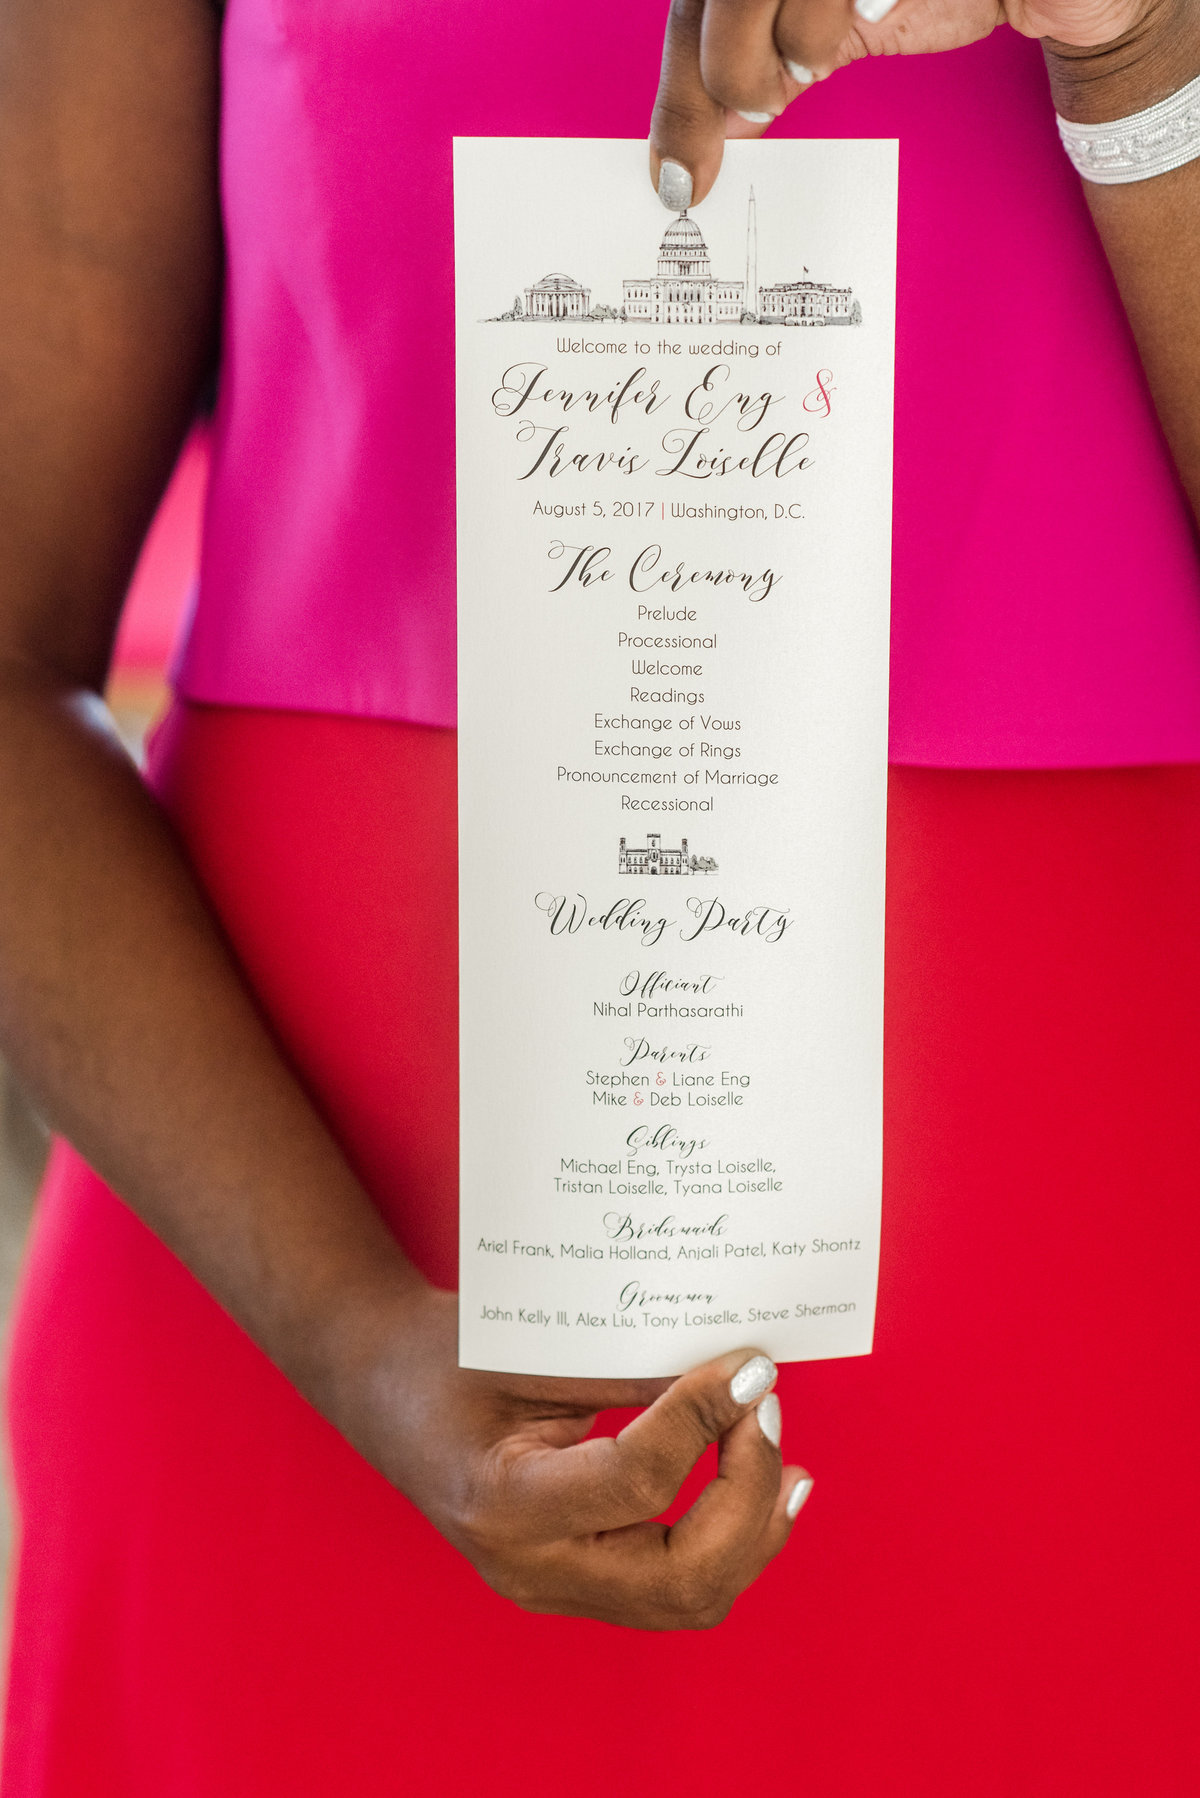 Welcome to the wedding of
Jennifer Eng &
Travis Loiselle
August 5, 2017 | Washington, D.C.
The Ceremony
Prelude
Processional
Welcome
Readings
Exchange of Vows
Exchange of Rings
Pronouncement of Marriage
Recessional
Wedding Party
Officiant
Nihal Parthasarathi
Parents
Stephen & Liane Eng
Mike & Deb Loiselle
Siblings
Michael Eng, Trysta Loiselle,
Tristan Loiselle, Tyana Loiselle
Bridesmaids
Ariel Frank, Malia Holland, Anjali Patel, Katy Shontz
Groomsmen
John Kelly III, Alex Liu, Tony Loiselle, Steve Sherman